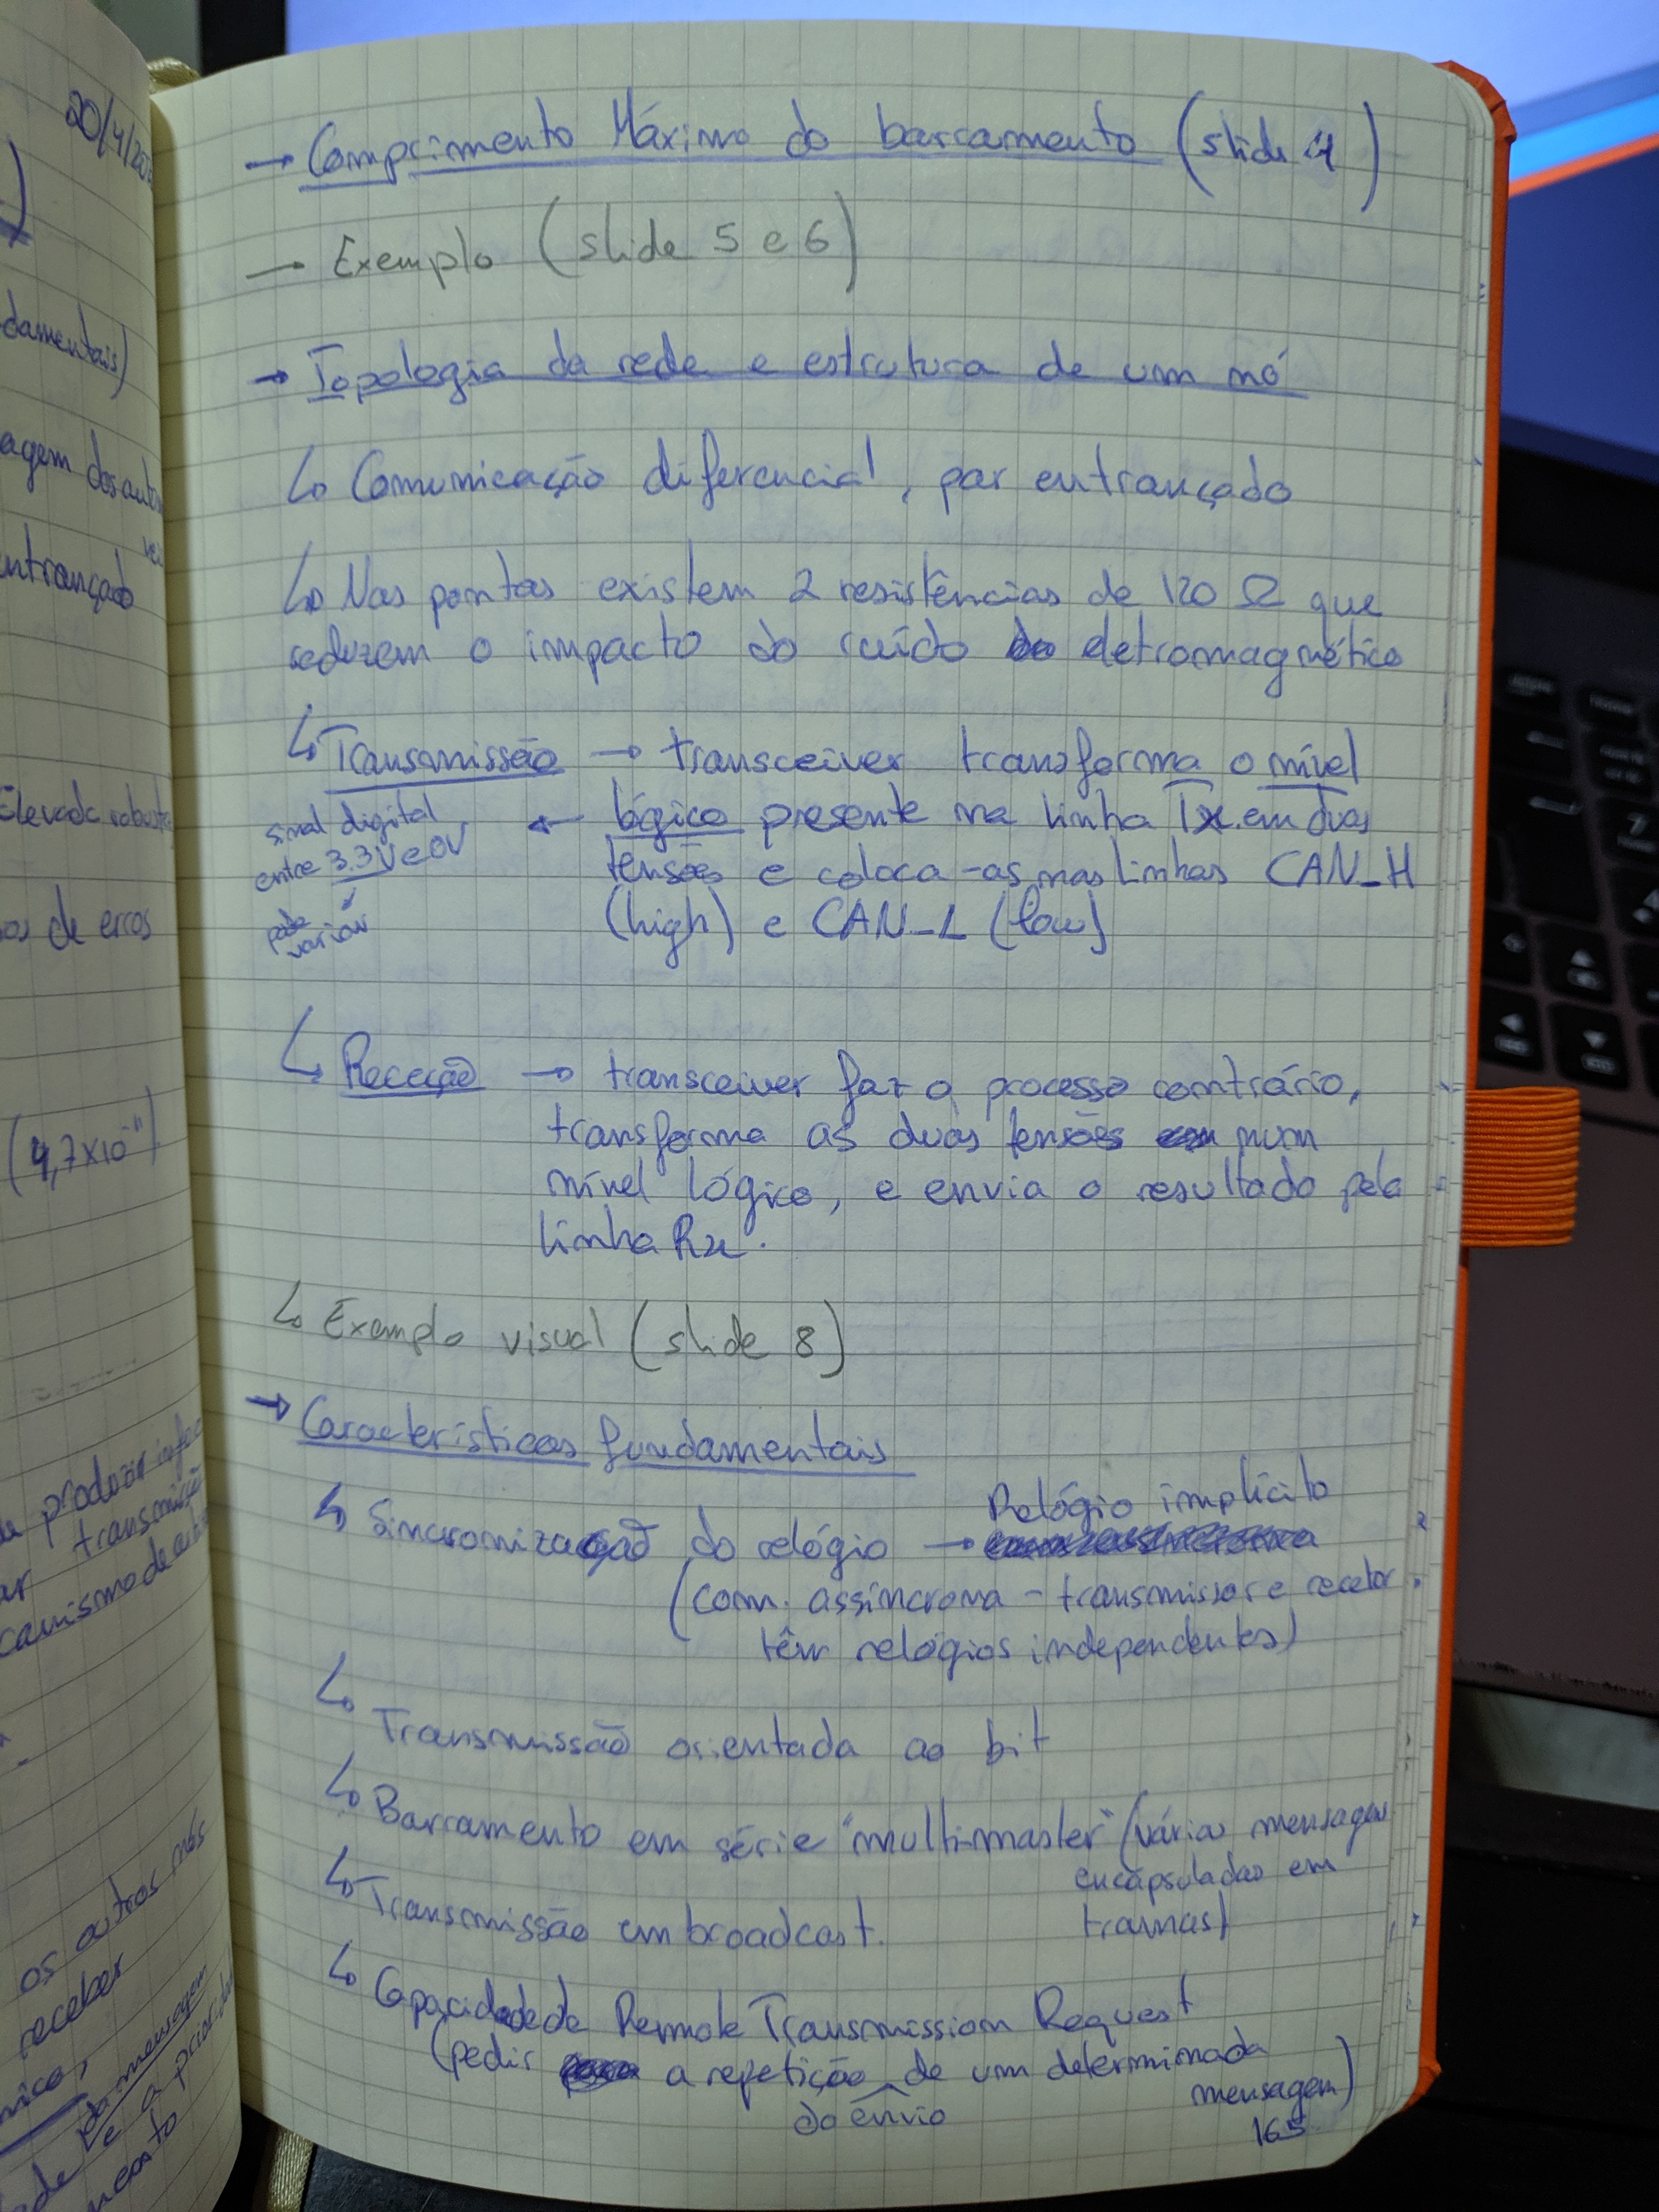 20/4/20
)
damentais)
agem dos auto
vei
ntrançado
Elevada robust
os de erros
(4,7x10⁻¹¹)
produzir
transmissão
ar
canismo de
os outros nós
receber
da mensagem
e a priorid
→ Comprimento Máximo do barramento (slide 4)
→ Exemplo (slide 5 e 6)
→ Topologia da rede e estrutura de um nó
↳ Comunicação diferencial, par entrançado
↳ Nas pontas existem 2 resistências de 120 Ω que
reduzem o impacto do ruído eletromagnético
↳ Transmissão → transceiver transforma o nível
lógico presente na linha Tx em duas
tensões e coloca-as nas linhas CAN_H
(high) e CAN_L (low)
← sinal digital
entre 3.3V e 0V
pode
variar
↳ Receção → transceiver faz o processo contrário,
transforma as duas tensões num
nível lógico, e envia o resultado pela
linha Rx.
↳ Exemplo visual (slide 8)
→ Características fundamentais
↳ Sincronização do relógio → Relógio implícito
(com. assíncrona - transmissor e recetor
têm relógios independentes)
↳ Transmissão orientada ao bit
↳ Barramento em série "multi-master" (várias mensagens
encapsuladas em
tramas)
↳ Transmissão em broadcast.
↳ Capacidade de Remote Transmission Request
(pedir a repetição do envio de um determinada
mensagem)
165